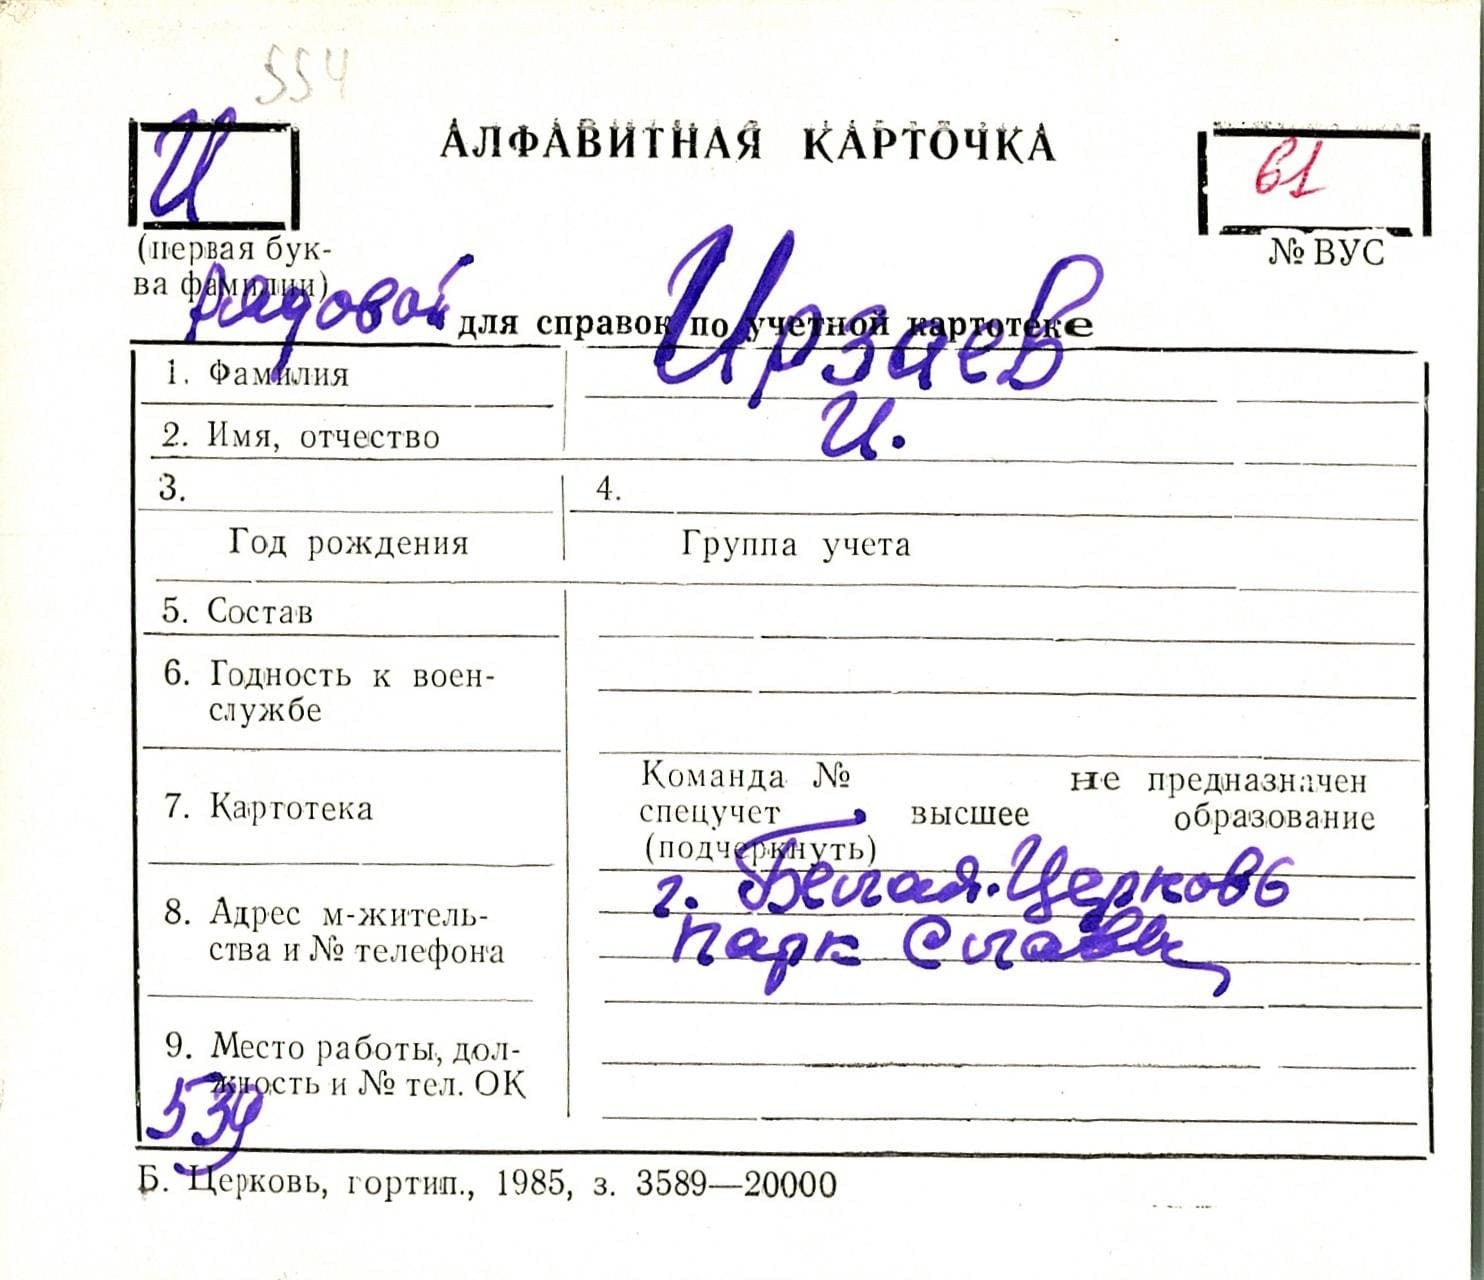 554
И
АЛФАВИТНАЯ КАРТОЧКА
61
(первая бук-
ва фамилии)
№ ВУС
рядовой
для справок по учетной картотеке
1. Фамилия
Ирзаев
2. Имя, отчество
И.
3.
4.
Год рождения
Группа учета
5. Состав
6. Годность к воен-
службе
7. Картотека
Команда № не предназначен
спецучет высшее образование
(подчеркнуть)
8. Адрес м-житель-
ства и № телефона
г. Белая-Церковь
парк Славы
9. Место работы, дол-
жность и № тел. ОК
539
Б. Церковь, гортип., 1985, з. 3589—20000